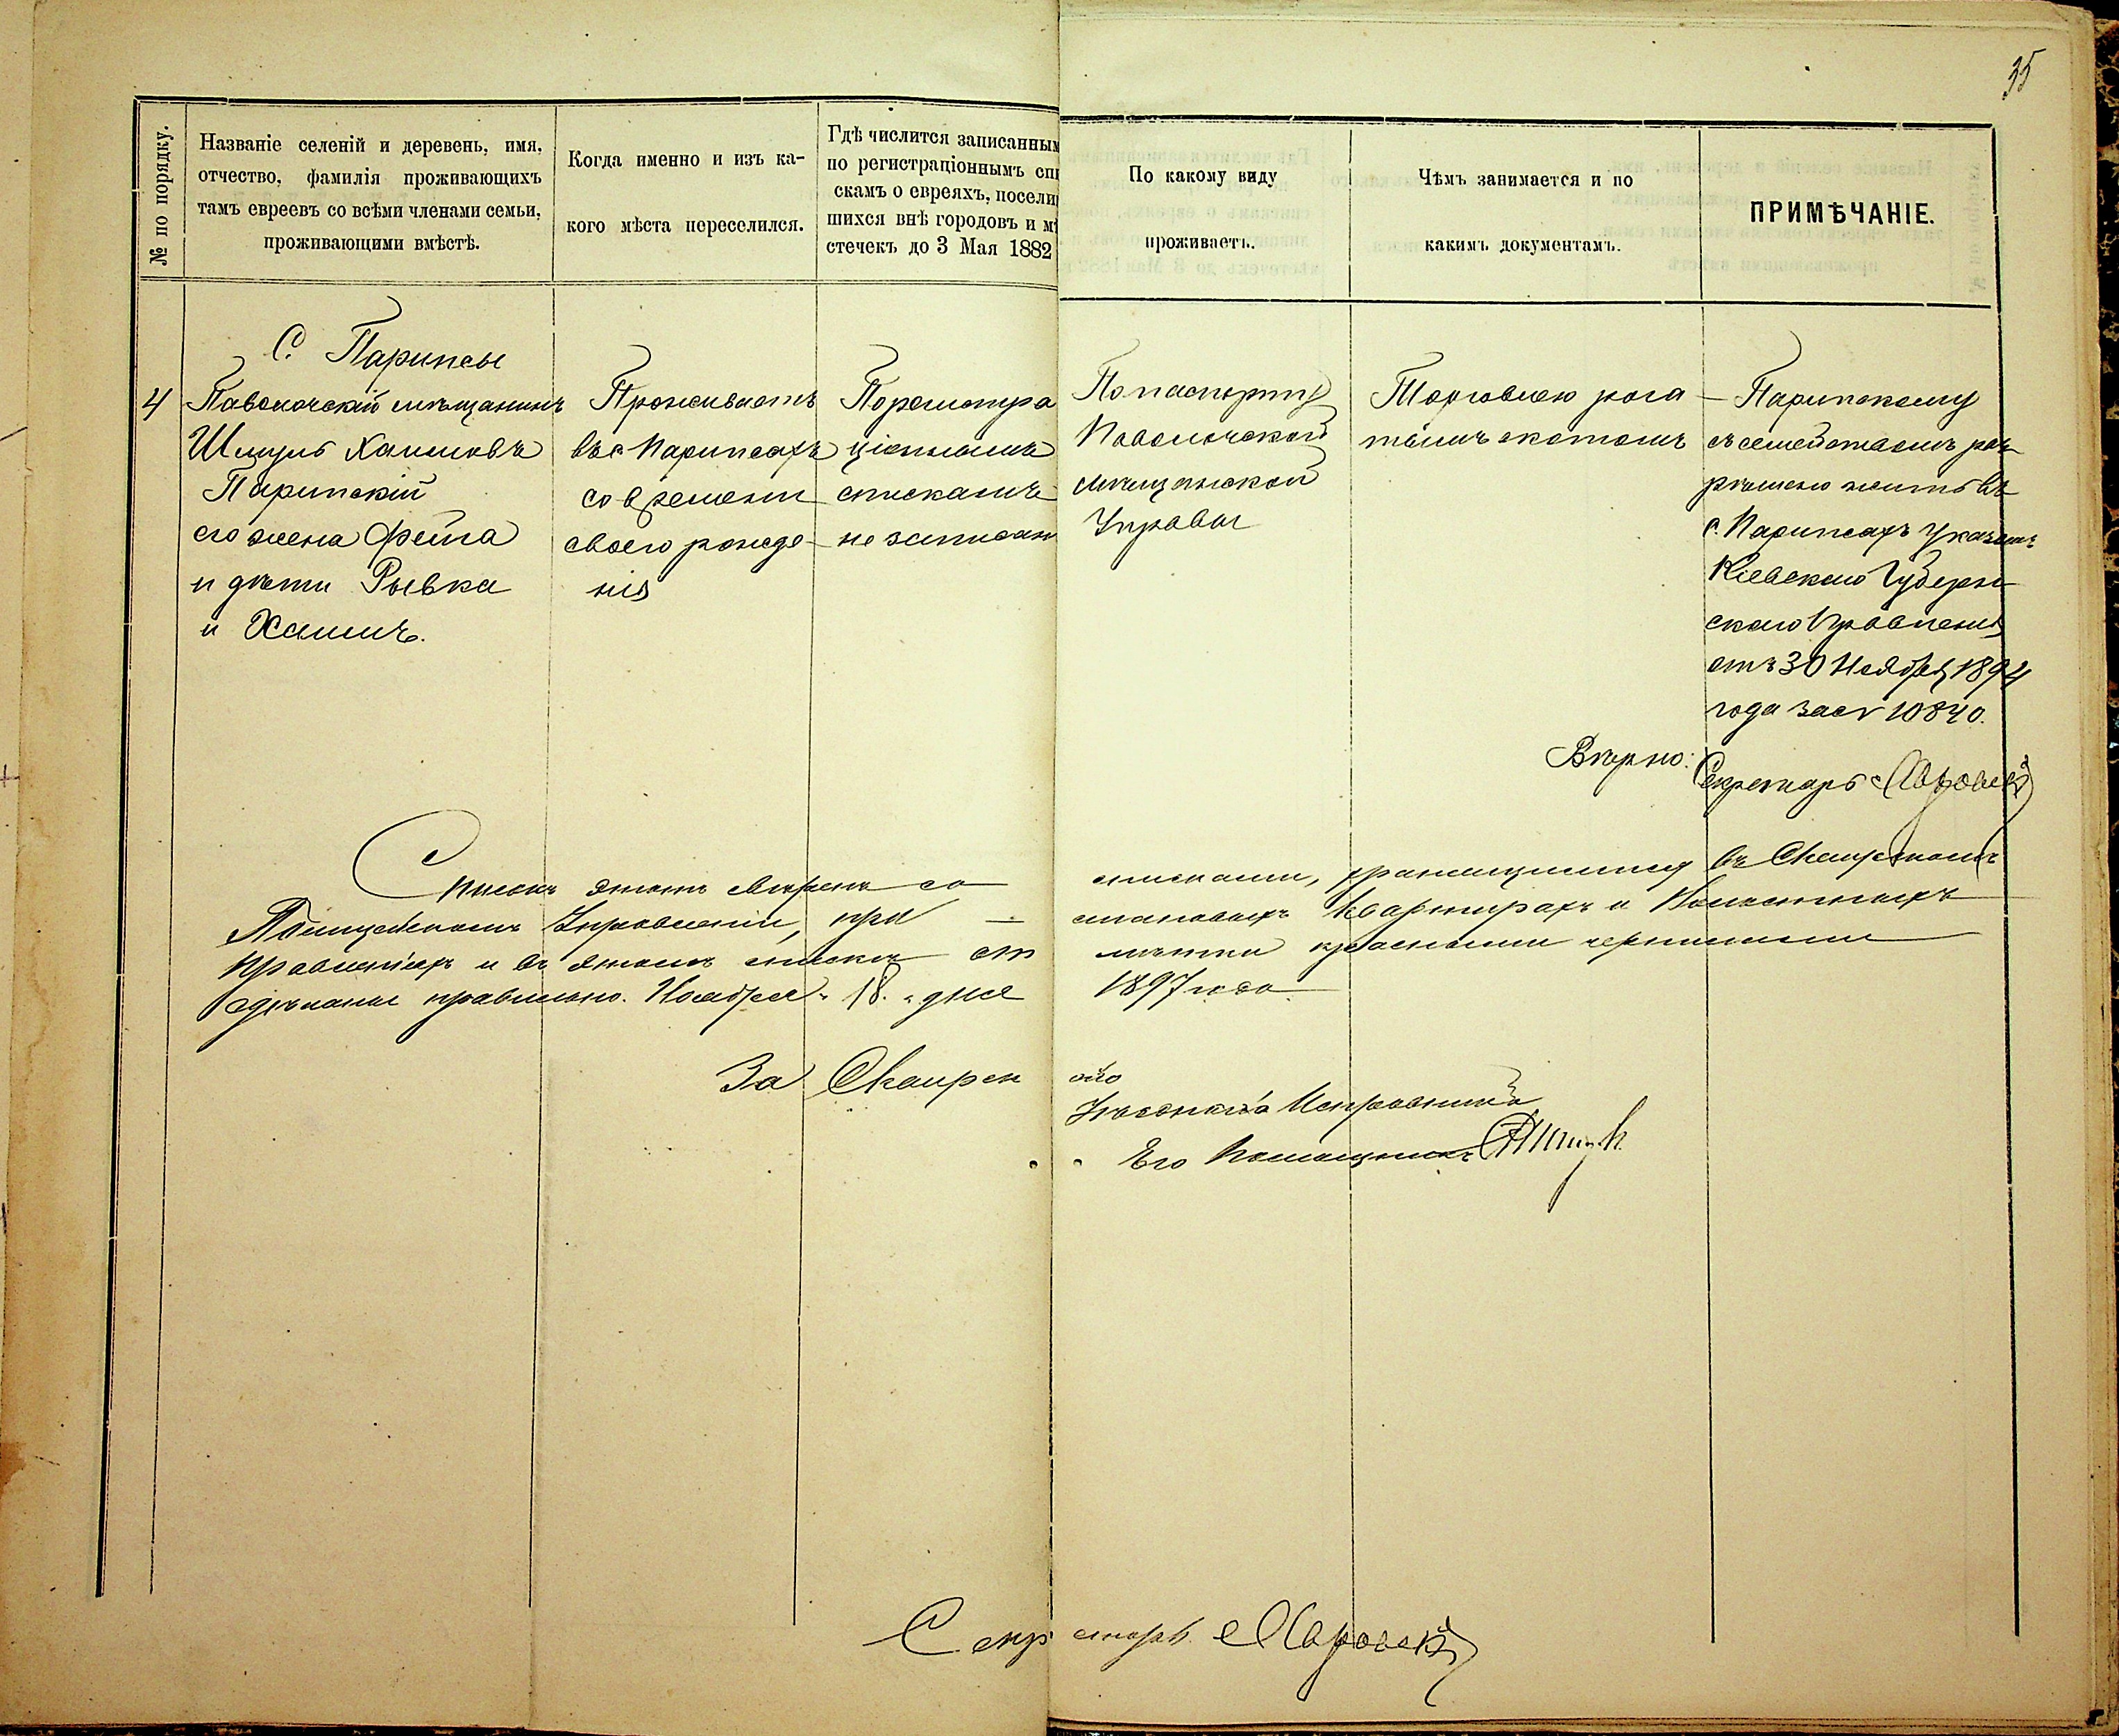 35
№ по порядку.
Названіе селеній и деревень, имя,
отчество, фамилія проживающихъ
тамъ евреевъ со всѣми членами семьи,
проживающими вмѣстѣ.
Когда именно и изъ ка-
кого мѣста переселился.
Гдѣ числится записанным
по регистраціоннымъ спи
скамъ о евреяхъ, посели
шихся внѣ городовъ и мѣ
стечекъ до 3 Мая 1882
По какому виду
проживаетъ.
Чѣмъ занимается и по
какимъ документамъ.
ПРИМѢЧАНІЕ.
С. Парипсы
4
Паволочскій мѣщанинъ
Шмуль Хаимовъ
Парипскій
его жена Фейга
и дѣти Рывка
и Хаимъ.
Проживаетъ
въ с. Парипсахъ
со времени
своего рожде-
нія
По регистра
ціоннымъ
спискамъ
не записан
По паспорту
Паволочской
мѣщанской
Управы
Торговлею рога-
тымъ скотомъ
Парипскому
съ семействомъ раз
рѣшено жить въ
с. Парипсахъ Указомъ
Кіевского Губерн
ского Правленія
отъ 30 Ноября 1894
года за № 10840.
Вѣрно: Секретарь
Списокъ этотъ свѣренъ со списками, хранящимися въ Сквирскомъ
Полицейскомъ Управленіи, при становыхъ квартирахъ и Волостныхъ
Правленіяхъ и въ этомъ спискѣ отмѣтки красными чернилами
сдѣланы правильно. Ноября "18" дня 1897 года.
За Сквирского
Уѣзднаго Исправника
Его Помощникъ
Секретарь